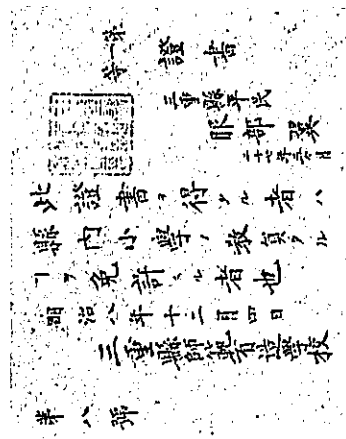 證書
第一等
三重縣平民
服部
二十七年三ヶ月
此證書ヲ得ル者ハ
縣内小學ノ教員タル
ヿヲ免許スル者也
明治八年十二月四日
三重縣師範有造學校
第八號